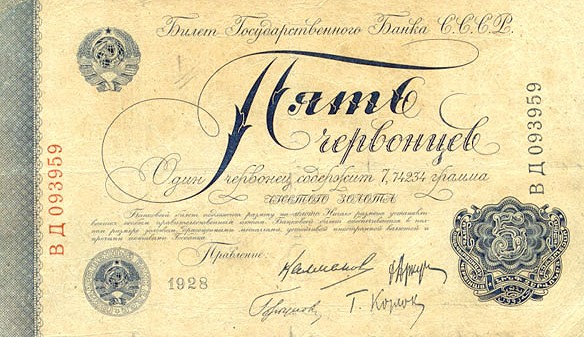 Билет Государственного Банка С.С.С.Р.
Пять
червонцев
Один червонец содержит 7,74234 грамма
чистого золота
Банковый билет подлежит размену на золото. Начало размена устанавли-
вается особым правительственным актом. Банковый билет обеспечивается в пол-
ном размере золотом, драгоценными металлами, устойчивой иностранной валютой и
прочими активами Госбанка
Правление:
1928
ВД 093959
ВД 093959
5